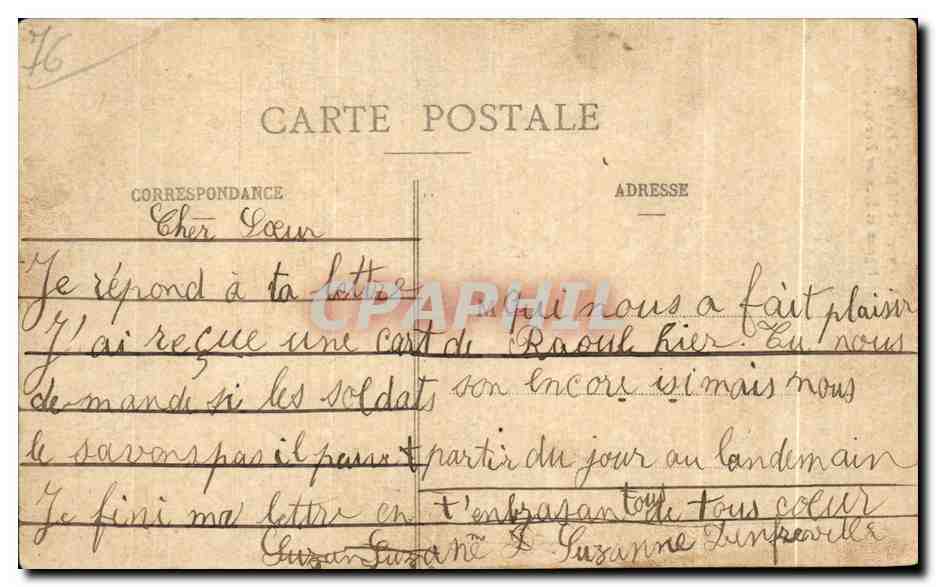 76
CARTE POSTALE
CORRESPONDANCE
ADRESSE
Cher Sœur
Je répond à ta lettre qui nous a fait plaisir
J'ai reçue une cart de Raoul hier. Tu nous
demande si les soldats son encore isi mais nous
le savons pas il peuve t partir du jour au landemain
Je fini ma lettre en t'enbrasan tous de tous cœur
Suzanne
CPAPHIL